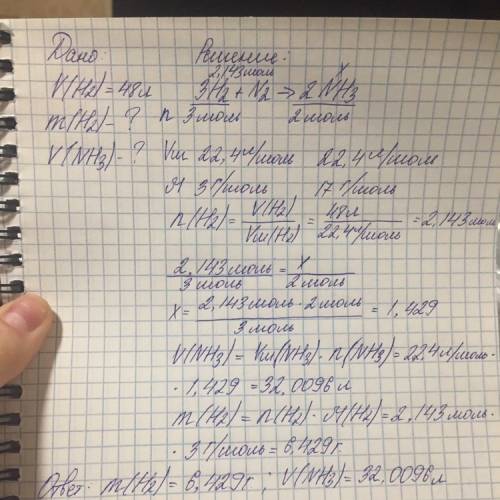 Дано: Решение:
2,143моль x
V(H₂)=48л 3H₂ + N₂ => 2NH₃
m(H₂)-? n 3моль 2моль
V(NH₃)-? Vm 22,4л/моль 22,4л/моль
M 3г/моль 17г/моль
n(H₂)= V(H₂)/Vm(H₂) = 48л/22,4л/моль = 2,143моль
2,143моль/3моль = x/2моль
x= 2,143моль·2моль/3моль = 1,429
V(NH₃)= Vm(NH₃)·n(NH₃)=22,4л/моль·
·1,429 =32,0096л
m(H₂)=n(H₂)·M(H₂)=2,143моль·
·3г/моль=6,429г
Ответ: m(H₂)=6,429г; V(NH₃)=32,0096л